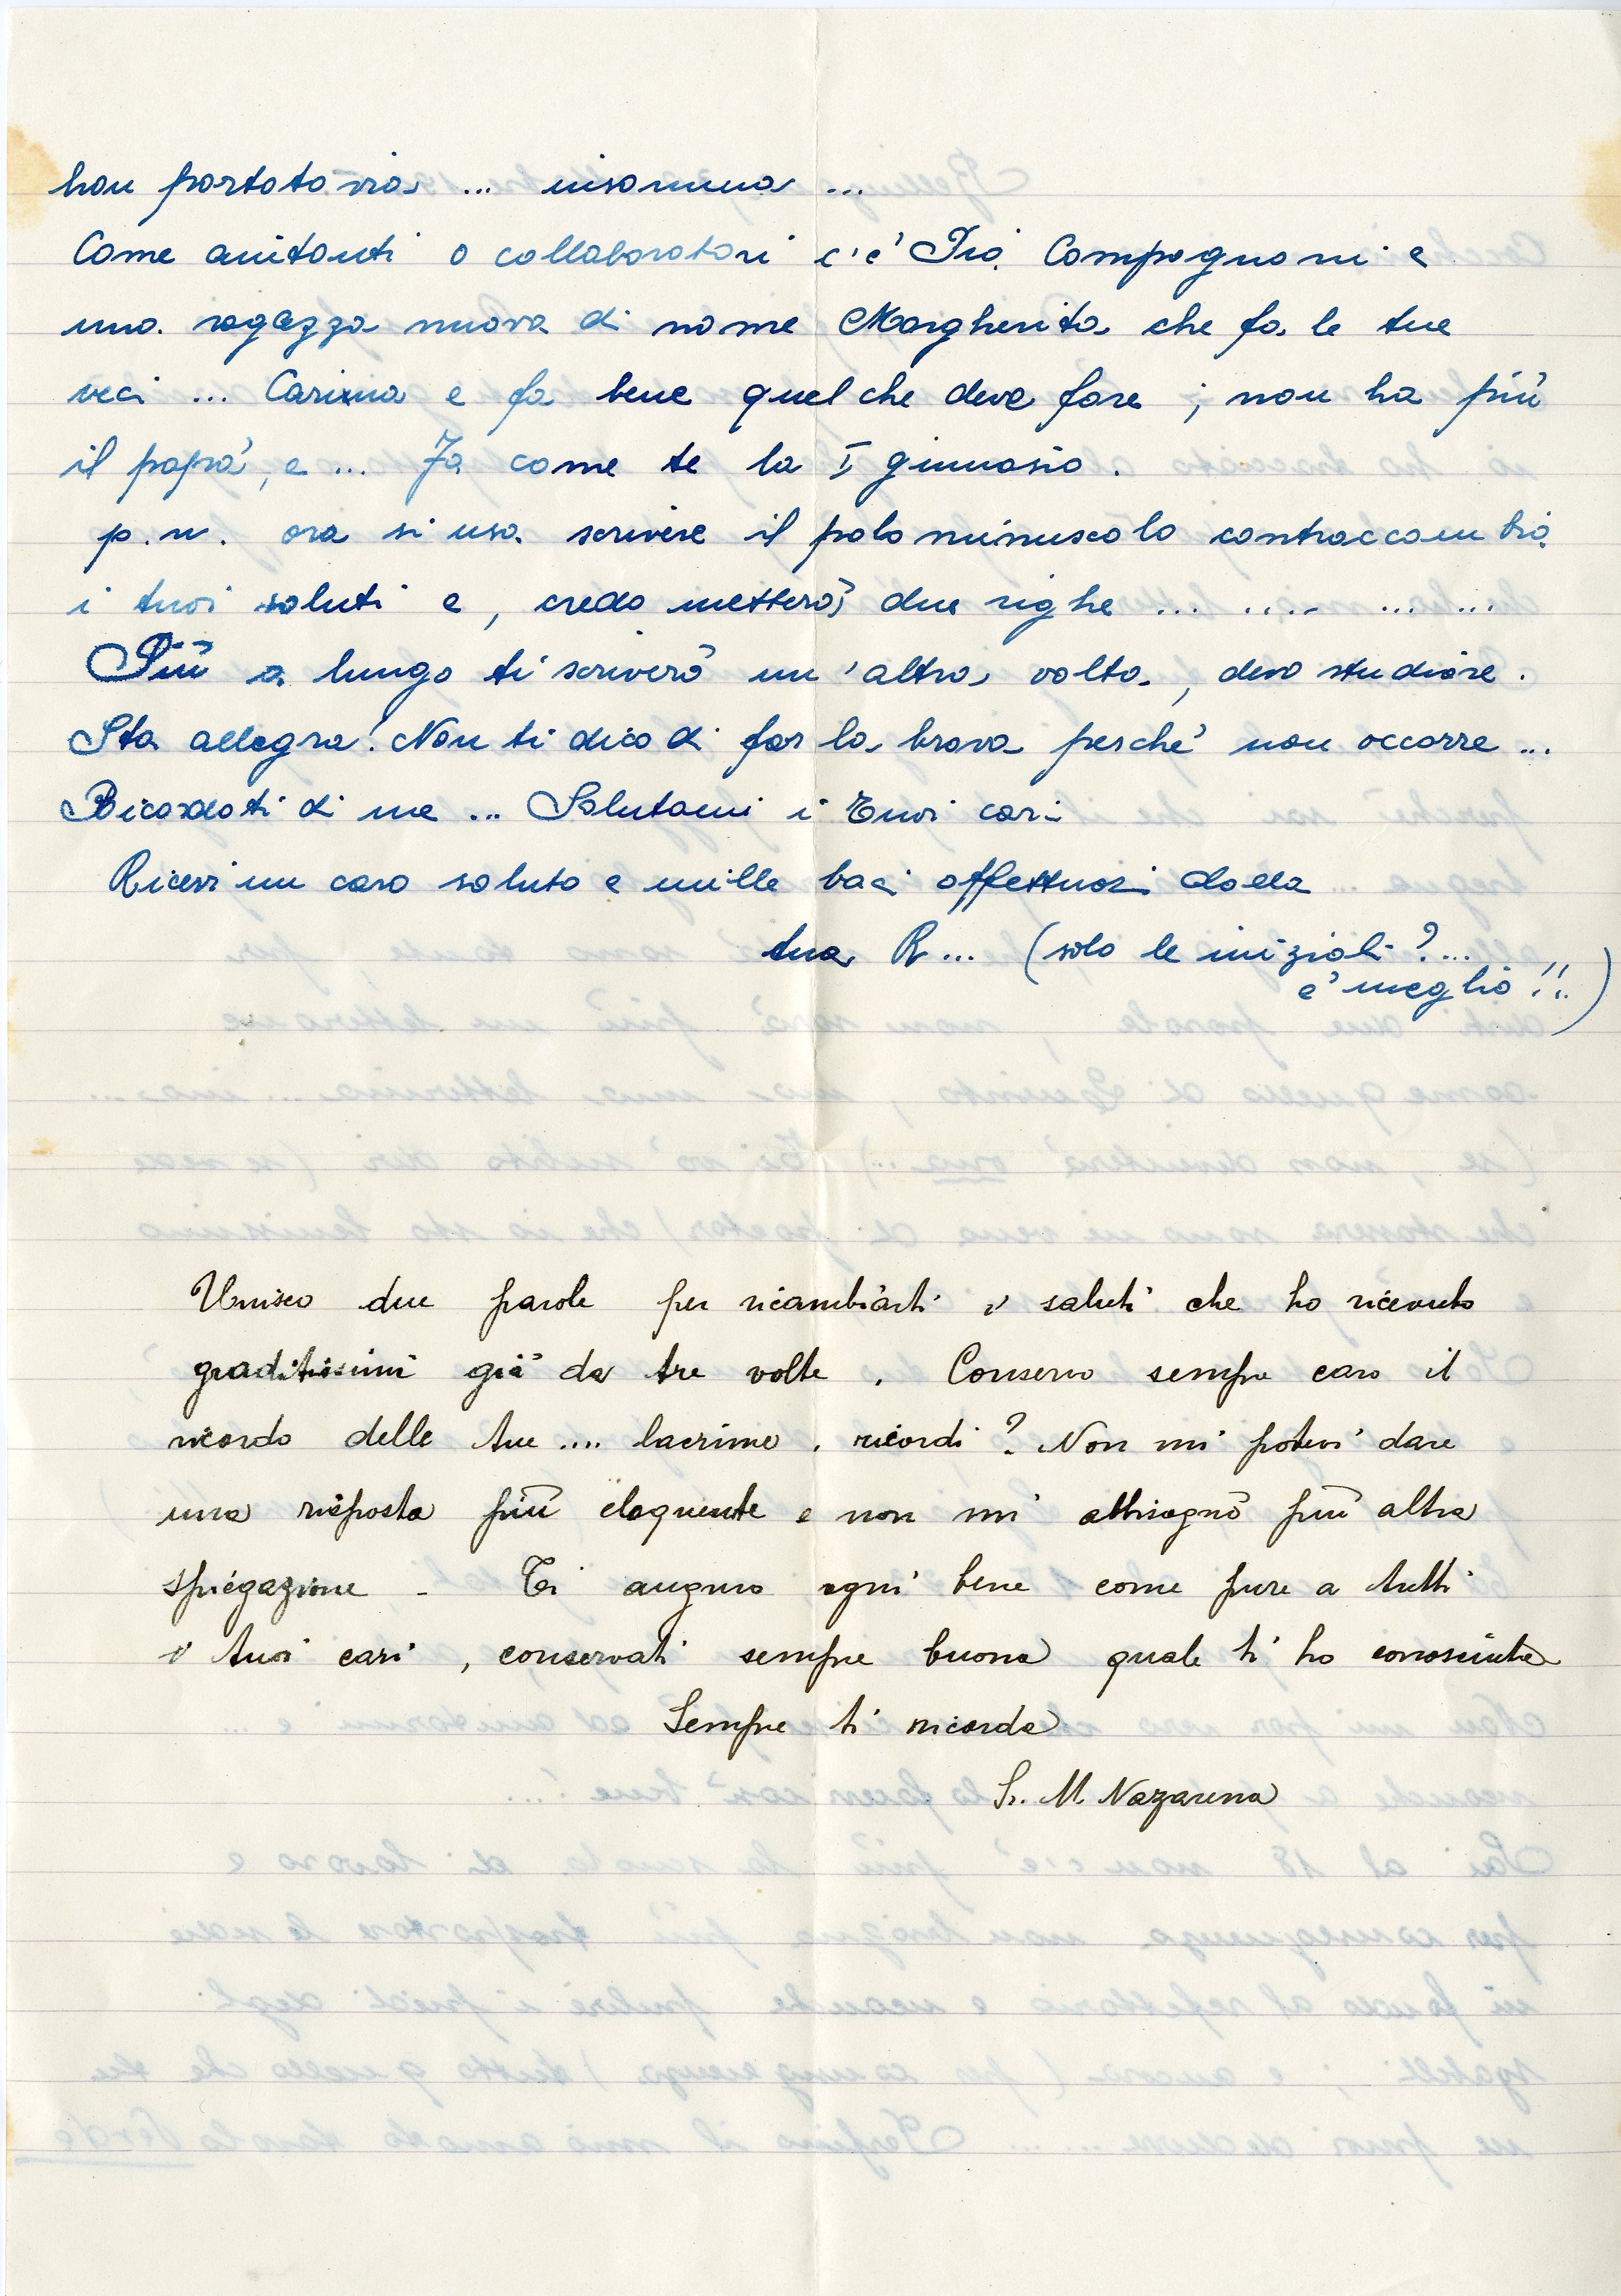 han portato via ... insomma ...
Come aiutanti o collaboratori c'è Pia Compagnoni e
una ragazza nuova di nome Margherita che fa le tue
veci ... Carina e fa bene quel che deve fare ; non ha più
il papà, e ... Fa come te la I ginnasio .
p.n. ora si usa scrivere il minuscolo contraccambia
i tuoi saluti e , credo metterà due righe ... .... ... ...
Più a lungo ti scriverò un'altra volta , devo studiare .
Sta allegra! Non ti dico di far la brava perchè non occorre ...
Ricordati di me ... Salutami i Tuoi cari
Ricevi un caro saluto e mille baci affettuosi dalla
tua R... (solo le iniziali ?...
e' meglio !!. )
Unisco due parole per ricambiarti i saluti che ho ricevuto
graditissimi già da tre volte . Conservo sempre caro il
ricordo delle tue .... lacrime . ricordi ? Non mi potevi dare
una risposta più eloquente e non mi abbisognò più altra
spiegazione - Ti auguro ogni bene come pure a tutti
i tuoi cari , conservati sempre buona quale ti ho conosciuta
Sempre ti ricorda
Sr. M. Nazarena